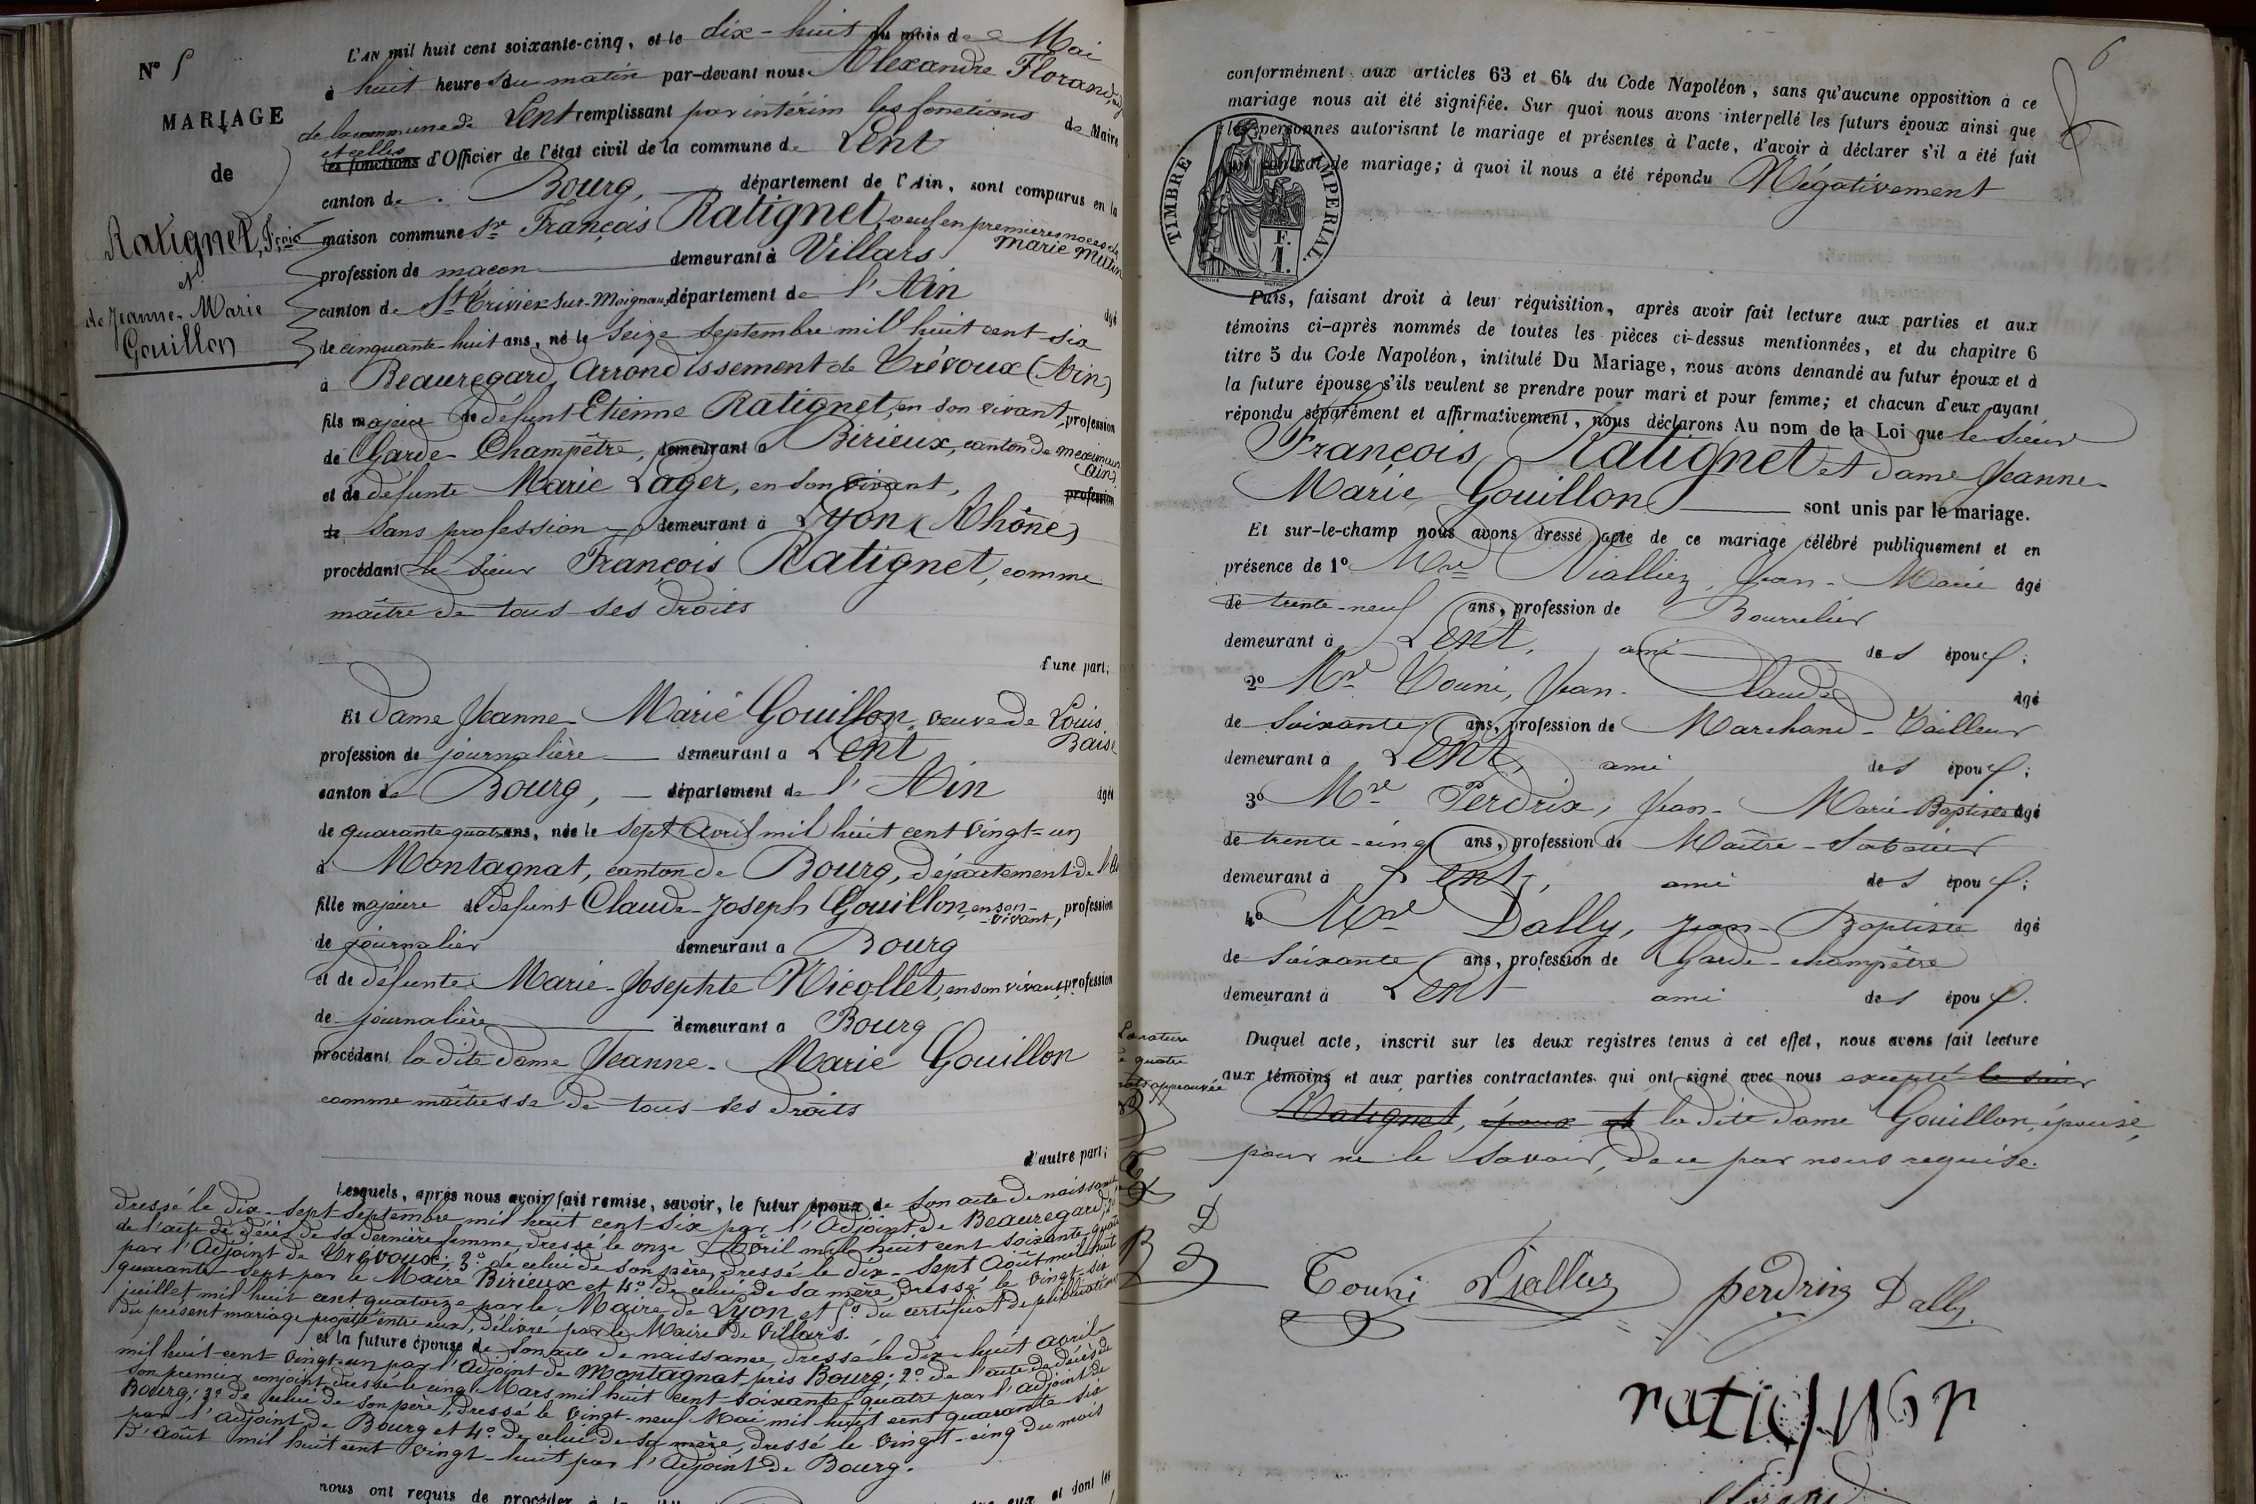 N° 5
MARIAGE
de
Ratignet, Fçois
et
de Jeanne-Marie
Gouillon
L'AN mil huit cent soixante-cinq, et le dix-huit du mois de Mai
à huit heures du matin par-devant nous Alexandre Florand, adj
de la commune de Lent remplissant par intérim les fonctions de Maire
et celles
les fonctions d'Officier de l'état civil de la commune de Lent
canton de Bourg, département de l'Ain, sont comparus en la
maison commune Sr François Ratignet, veuf en premières noces de
Marie Mutin
profession de maçon demeurant à Villars
canton de St Trivier-sur-Moignans département de l'Ain âgé
de cinquante-huit ans, né le seize septembre mil huit cent six
à Beauregard, Arrondissement de Trévoux (Ain)
fils majeur de défunt Etienne Ratignet, en son vivant, profession
de Garde Champêtre, demeurant à Birieux, canton de meximieux
(Ain)
et de défunte Marie Lager, en son vivant, profession
de sans profession demeurant à Lyon (Rhône)
procédant le sieur François Ratignet, comme
maître de tous ses droits
d'une part;
Et Dame Jeanne-Marie Gouillon, veuve de Louis
Baise
profession de journalière demeurant à Lent
canton de Bourg, département de l'Ain âgée
de quarante quatre ans, née le sept Avril mil huit cent vingt-un
à Montagnat, canton de Bourg, département de l'Ain
fille majeure de défunt Claude-Joseph Gouillon, en son-
-vivant, profession
de journalier demeurant à Bourg
et de défunte Marie-Josephte Nicollet, en son vivant, profession
de journalière demeurant à Bourg
procédant la dite dame Jeanne-Marie Gouillon
comme maîtresse de tous ses droits
d'autre part;
Lesquels, après nous avoir fait remise, savoir, le futur époux de son acte de naissance
dressé le dix-sept septembre mil huit cent six par l'Adjoint de Beauregard, 2°
de l'acte de décès de sa dernière femme, dressé le onze Avril mil huit cent soixante-quatre
par l'Adjoint de Trévoux; 3° de celui de son père, dressé le dix-sept Août mil huit
quarante-sept par le Maire Birieux et 4° de celui de sa mère, dressé le vingt-six
juillet mil huit cent quatorze par le Maire de Lyon et 5° du certificat de publications
du présent mariage projeté entre eux, délivré par le Maire de Villars.
et la future épouse de son acte de naissance, dressé le dix-huit avril
mil huit cent vingt-un par l'Adjoint de Montagnat près Bourg; 2° de l'acte de décès de
son premier conjoint dressé le cinq Mars mil huit cent soixante-quatre par l'adjoint de
Bourg; 3° de celui de son père, dressé le vingt-neuf Mai mil huit cent quarante six
par l'adjoint de Bourg et 4° de celui de sa mère, dressé le vingt-cinq du mois
d'Août mil huit cent vingt-huit par l'Adjoint de Bourg.
nous ont requis de procéder à eux et dont les
6
conformément aux articles 63 et 64 du Code Napoléon, sans qu'aucune opposition à ce
mariage nous ait été signifiée. Sur quoi nous avons interpellé les futurs époux ainsi que
les personnes autorisant le mariage et présentes à l'acte, d'avoir à déclarer s'il a été fait
un contrat de mariage; à quoi il nous a été répondu Négativement
TIMBRE IMPERIAL.
F.
1.
Puis, faisant droit à leur réquisition, après avoir fait lecture aux parties et aux
témoins ci-après nommés de toutes les pièces ci-dessus mentionnées, et du chapitre 6
titre 5 du Code Napoléon, intitulé Du Mariage, nous avons demandé au futur époux et à
la future épouse s'ils veulent se prendre pour mari et pour femme; et chacun d'eux ayant
répondu séparément et affirmativement, nous déclarons Au nom de la Loi que le sieur
François Ratignet et dame Jeanne-
Marie Gouillon sont unis par le mariage.
Et sur-le-champ nous avons dressé acte de ce mariage célébré publiquement et en
présence de 1° Mre Vialliez, Jean-Marie âgé
de trente-neuf ans, profession de Bourrelier
demeurant à Lent, ami des époux;
2° Mr Touni, Jean-Claude âgé
de soixante ans, profession de Marchand-Tailleur
demeurant à Lent, ami des époux;
3° Mre Perdrix, Jean-Marie-Baptiste âgé
de trente-cinq ans, profession de Maître-Sabotier
demeurant à Lent, ami des époux;
4° Mre Dally, Jean-Baptiste âgé
de soixante ans, profession de Garde-champêtre
demeurant à Lent ami des époux.
Duquel acte, inscrit sur les deux registres tenus à cet effet, nous avons fait lecture
aux témoins et aux parties contractantes qui ont signé avec nous excepté le sieur
Ratignet, époux et la dite dame Gouillon, épouse,
pour ne le savoir, de ce par nous requise.
La rature
de quatre
mots approuvée
Touni Vialliez perdrix Dally
ratignet
florand